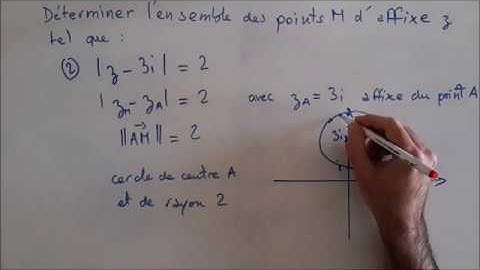 Déterminer l'ensemble des points M d'affixe z
tel que :
② | z - 3i | = 2
| z_M - z_A | = 2 avec z_A = 3i affixe du point A
||AM→|| = 2
cercle de centre A
et de rayon 2
3i